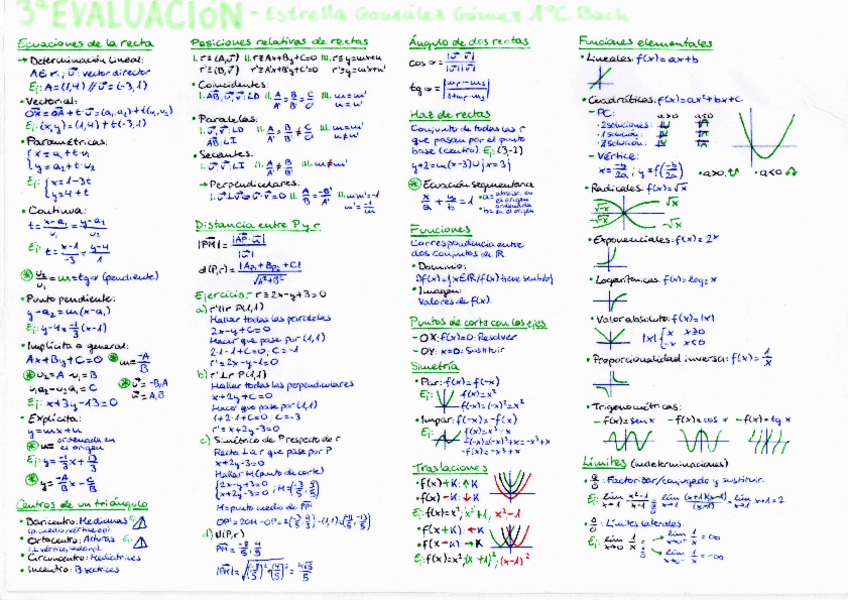 3ª EVALUACIÓN - Estrella González Gómez 1ºC Bach
Ecuaciones de la recta
→ Determinación lineal:
A ∈ r ; u⃗: vector director
Ej: A = (1,4) // u⃗ = (-3,1)
• Vectorial:
OX = OA + t·u⃗ = (a₁,a₂) + t(v₁,v₂)
Ej: (x,y) = (1,4) + t(-3,1)
• Paramétricas:
x = a₁ + t v₁
y = a₂ + t v₂
Ej: x = 1-3t
y = 4+t
• Continua:
t = x-a₁/v₁ = y-a₂/v₂
Ej: t = x-1/-3 = y-4/1
v₂/v₁ = m = tg α (pendiente)
• Punto pendiente:
y-a₂ = m(x-a₁)
Ej: y-4 = -1/3 (x-1)
• Implícita o general:
Ax+By+C=0 m = -A/B
v₂=A -v₁=B
v₁a₂-v₂a₁=C u⃗ = -B,A
Ej: x+3y-13=0 v⃗ = A,B
• Explícita:
y=mx+n
n = ordenada en el origen
Ej: y = -1/3 x + 13/3
y = -A/B x - C/B
Centros de un triángulo
• Baricentro: Medianas
• Ortocentro: Alturas
• Circuncentro: Mediatrices
• Incentro: Bisectrices
Posiciones relativas de rectas
I. r≡(A,u⃗) II. r≡Ax+By+C=0 III. r≡y=mx+n
• Coincidentes:
I. AB, u⃗, v⃗: LD II. A/A' = B/B' = C/C' III. m=m' n=n'
• Paralelas:
I. u⃗, v⃗: LD II. A/A' = B/B' ≠ C/C' III. m=m' n≠n'
AB: LI
• Secantes:
I. u⃗, v⃗: LI II. A/A' ≠ B/B' III. m≠m'
→ Perpendiculares:
I. u⃗⊥v⃗ ⇒ u⃗·v⃗=0 II. A/B = -B'/A' III. m·m'=-1
Distancia entre P y r
|PM| = |AP·u⃗|/|u⃗|
d(P,r) = |Ap₁+Bp₂+C|/√A²+B²
Ejercicio: r≡2x-y+3=0
a) r'//r P(1,1)
Hallar todas las paralelas
2x-y+C=0
Hacer que pase por (1,1)
2·1-1+C=0, C=-1
r'≡2x-y-1=0
b) r'⊥r P(1,1)
Hallar todas las perpendiculares
x+2y+C=0
Hacer que pase por (1,1)
1+2·1+C=0, C=-3
r'≡x+2y-3=0
c) Simétrico de P respecto de r
Recta ⊥ a r que pase por P
x+2y-3=0
Hallar M (punto de corte)
2x-y+3=0
x+2y-3=0 ; M=(-3/5, 9/5)
M=punto medio de PP'
d) d(P,r)
Ángulo de dos rectas
cos α = |u⃗·v⃗|/|u⃗||v⃗|
tg α = |mr-ms/1+mr·ms|
Haz de rectas
Conjunto de todas las r
que pasan por el punto
base (centro). Ej: (3,-2)
y+2=m(x-3) ∪ {x=3}
Ecuación segmentaria
x/a + y/b = 1
Funciones
Correspondencia entre
dos conjuntos de ℝ
• Dominio:
D f(x)={x∈ℝ/f(x) tiene sentido}
• Imagen:
Valores de f(x)
Puntos de corte con los ejes
- OX: f(x)=0: Resolver
- OY: x=0: Sustituir
Simetría
• Par: f(x)=f(-x)
Ej: f(x)=x²
f(-x)=(-x)²=x²
• Impar: f(-x)=-f(x)
Traslaciones
• f(x)+K: ↑K
• f(x)-K: ↓K
Ej: f(x)=x²; x²+1; x²-1
• f(x+K): ←K
• f(x-K): →K
Ej: f(x)=x²; (x+1)²; (x-1)²
Funciones elementales
• Lineales: f(x)=ax+b
• Cuadráticas: f(x)=ax²+bx+c
- PC: a>0 a<0
· 2 soluciones:
· 1 solución:
- Vértice:
x = -b/2a ; y = f(-b/2a) • a>0, ∪ • a<0 ∩
• Radicales: f(x)=√x
√-x √x
-√-x -√x
• Exponenciales: f(x)=2ˣ
• Logarítmicas: f(x)=log₂x
• Valor absoluto: f(x)=|x|
|x| x x≥0
-x x<0
• Proporcionalidad inversa: f(x)=1/x
• Trigonométricas:
- f(x)=sen x - f(x)=cos x - f(x)=tg x
Límites (indeterminaciones)
• 0/0: Factorizar/conjugado y sustituir.
Ej: lím x→1 x²-1/x-1 = lím x→1 (x+1)(x-1)/x-1 = lím x→1 x+1=2
• Límites laterales
Ej: lím x→0 1/x
lím x→0⁺ 1/x = +∞
lím x→0⁻ 1/x = -∞